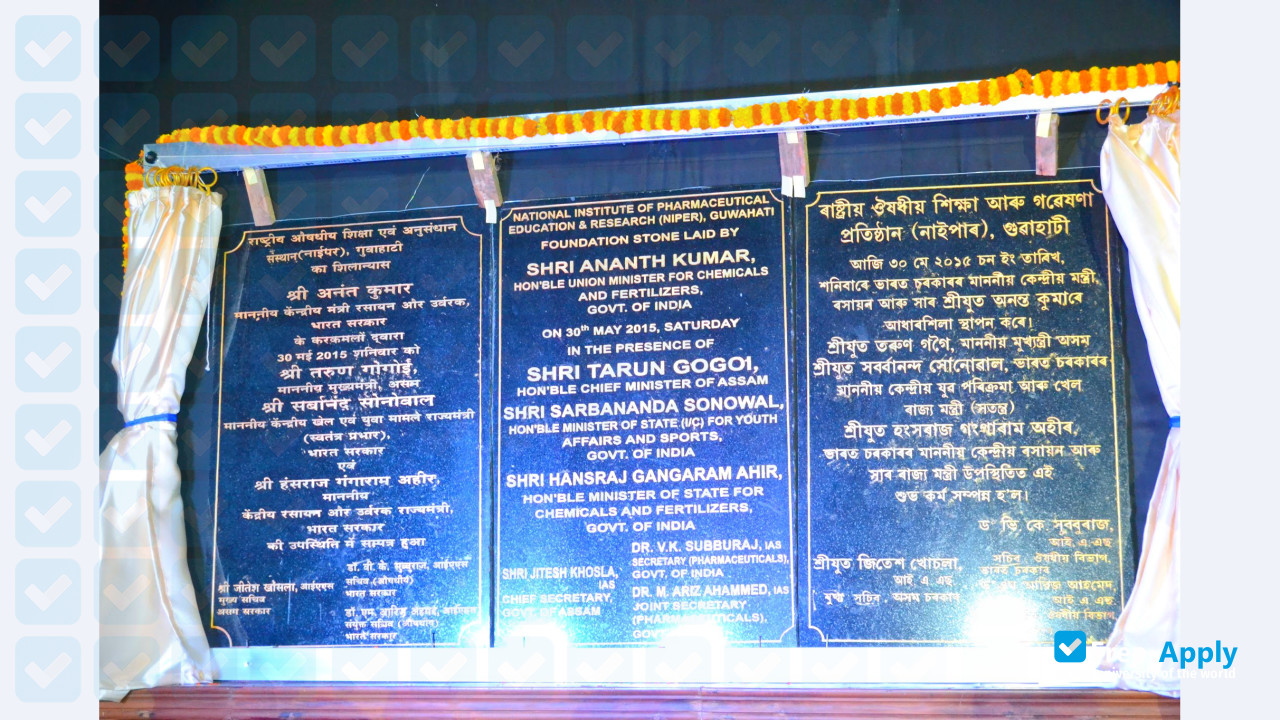 राष्ट्रीय औषधीय शिक्षा एवं अनुसंधान
संस्थान(नाईपर), गुवाहाटी
का शिलान्यास
श्री अनंत कुमार
माननीय केंद्रीय मंत्री रसायन और उर्वरक,
भारत सरकार
के करकमलों द्वारा
30 मई 2015 शनिवार को
श्री तरुण गोगोई,
माननीय मुख्यमंत्री, असम
श्री सर्बानंद सोनोवाल
माननीय केंद्रीय खेल एवं युवा मामले राज्यमंत्री
(स्वतंत्र प्रभार),
भारत सरकार
एवं
श्री हंसराज गंगाराम अहीर,
माननीय
केंद्रीय रसायन और उर्वरक राज्यमंत्री,
भारत सरकार
की उपस्थिति में सम्पन्न हुआ
डॉ. वी. के. सुब्बुराज, आईएएस
सचिव (औषधीय)
भारत सरकार
श्री जीतेश खोसला, आईएएस
मुख्य सचिव
असम सरकार
डॉ. एम. आरिज अहमद, आईएएस
संयुक्त सचिव (औषधीय)
भारत सरकार
NATIONAL INSTITUTE OF PHARMACEUTICAL
EDUCATION & RESEARCH (NIPER), GUWAHATI
FOUNDATION STONE LAID BY
SHRI ANANTH KUMAR,
HON'BLE UNION MINISTER FOR CHEMICALS
AND FERTILIZERS,
GOVT. OF INDIA
ON 30th MAY 2015, SATURDAY
IN THE PRESENCE OF
SHRI TARUN GOGOI,
HON'BLE CHIEF MINISTER OF ASSAM
SHRI SARBANANDA SONOWAL,
HON'BLE MINISTER OF STATE (I/C) FOR YOUTH
AFFAIRS AND SPORTS,
GOVT. OF INDIA
SHRI HANSRAJ GANGARAM AHIR,
HON'BLE MINISTER OF STATE FOR
CHEMICALS AND FERTILIZERS,
GOVT. OF INDIA
DR. V.K. SUBBURAJ, IAS
SECRETARY (PHARMACEUTICALS),
GOVT. OF INDIA
SHRI JITESH KHOSLA,
IAS
CHIEF SECRETARY,
GOVT. OF ASSAM
DR. M. ARIZ AHAMMED, IAS
JOINT SECRETARY
(PHARMACEUTICALS),
ৰাষ্ট্ৰীয় ঔষধীয় শিক্ষা আৰু গৱেষণা
প্ৰতিষ্ঠান (নাইপাৰ), গুৱাহাটী
আজি ৩০ মে ২০১৫ চন ইং তাৰিখ,
শনিবাৰে ভাৰত চৰকাৰৰ মাননীয় কেন্দ্ৰীয় মন্ত্ৰী,
ৰসায়ন আৰু সাৰ শ্ৰীযুত অনন্ত কুমাৰে
আধাৰশিলা স্থাপন কৰে।
শ্ৰীযুত তৰুণ গগৈ, মাননীয় মুখ্যমন্ত্ৰী অসম
শ্ৰীযুত সৰ্বানন্দ সোনোৱাল, ভাৰত চৰকাৰৰ
মাননীয় কেন্দ্ৰীয় যুব পৰিক্ৰমা আৰু খেল
ৰাজ্য মন্ত্ৰী (সতন্ত্ৰ)
শ্ৰীযুত হংসৰাজ গংগাৰাম অহীৰ,
ভাৰত চৰকাৰৰ মাননীয় কেন্দ্ৰীয় ৰসায়ন আৰু
সাৰ ৰাজ্য মন্ত্ৰী উপস্থিতিত এই
শুভ কৰ্ম সম্পন্ন হ'ল।
ড° ভি কে সুব্বুৰাজ,
আই এ এছ
সচিব, ঔষধীয় বিভাগ,
ভাৰত চৰকাৰ
শ্ৰীযুত জিতেশ খোচলা,
আই এ এছ
মুখ্য সচিব, অসম চৰকাৰ
আই এ এছ
ঔষধীয় বিভাগ
Apply
University of the world